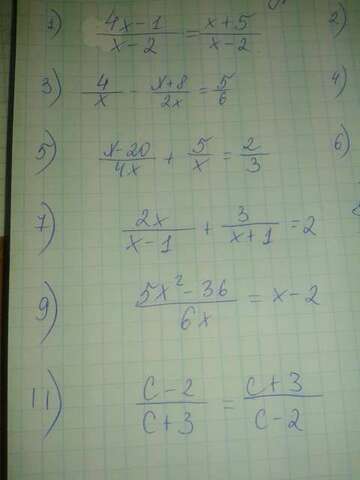 1) (4x-1)/(x-2) = (x+5)/(x-2) 2)
3) 4/x - (x+8)/2x = 5/6 4)
5) (x-20)/4x + 5/x = 2/3 6)
7) 2x/(x-1) + 3/(x+1) = 2
9) (5x²-36)/6x = x-2
11) (c-2)/(c+3) = (c+3)/(c-2)